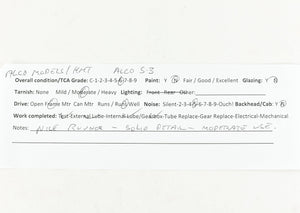 ALCO MODELS/KMT ALCO S-3
Overall condition/TCA Grade: C-1-2-3-4-5-6-7-8-9 Paint: Y N Fair / Good / Excellent Glazing: Y N
Tarnish: None Mild / Moderate / Heavy Lighting: Front Rear Other:
Drive: Open Frame Mtr Can Mtr Runs / Runs Well Noise: Silent-2-3-4-5-6-7-8-9-Ouch! Backhead/Cab: Y N
Work completed: Test External Lube-Internal Lube/Gearbox-Tube Replace-Gear Replace-Electrical-Mechanical
Notes: NICE RUNNER - SOLID DETAIL - MODERATE USE.